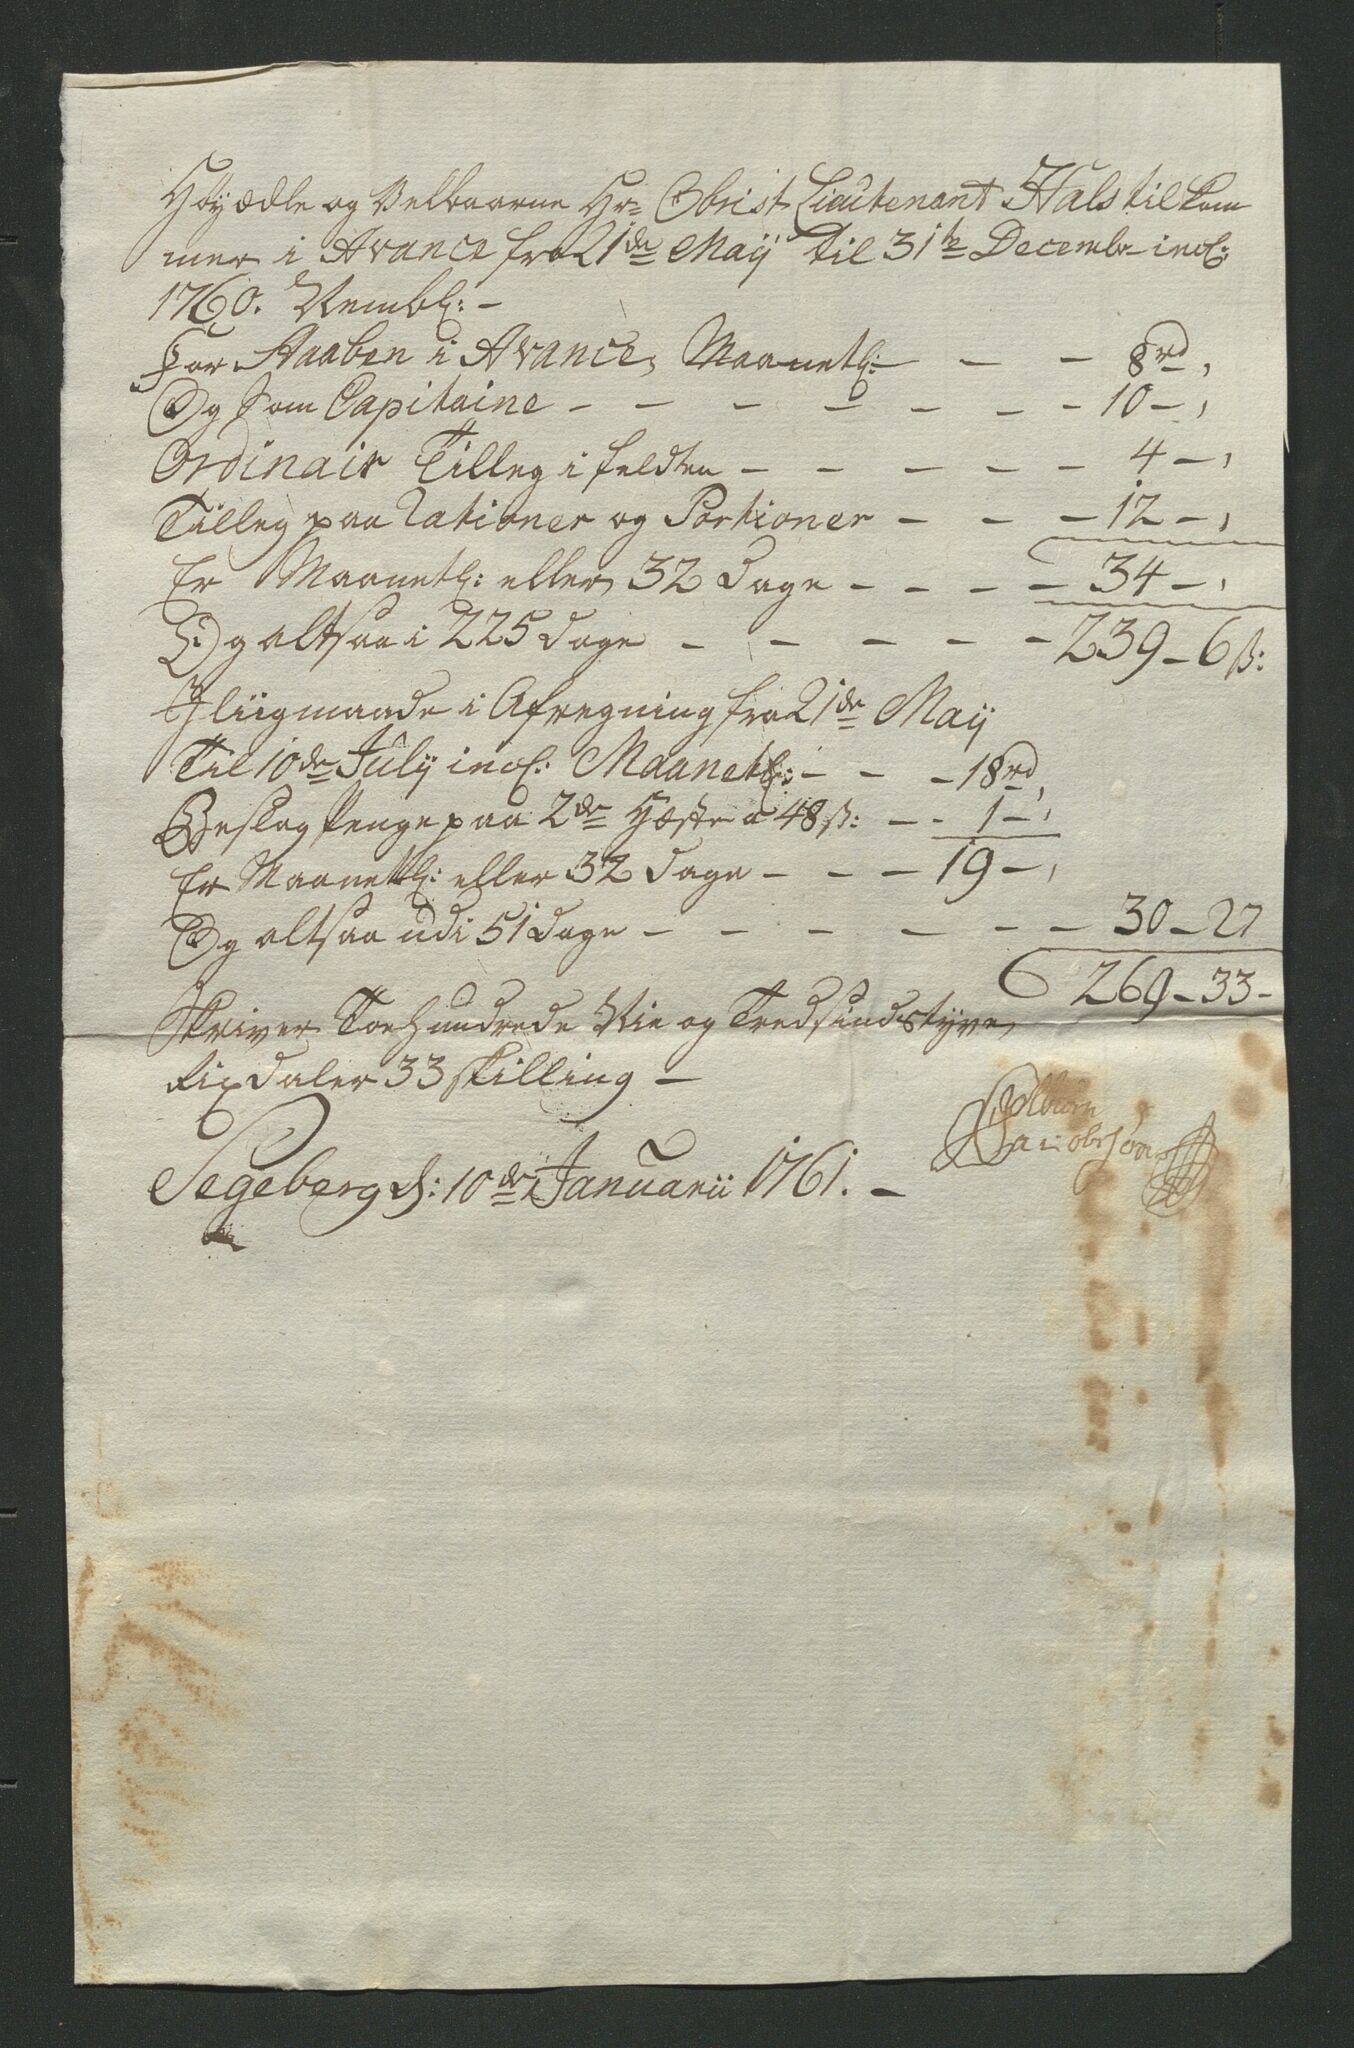 Høyædle og Velbaarne Hr: Obrist Lieutenant Hals tilkom
mer i Avance fra 21de Maij til 31te Decembr incl:
1760. Nembl: -
For Staaben i Avance, Maanetl: - - 8rd,
Og som Capitaine - - - - - - - 10 - ,
Ordinair Tilleg i feldten - - - - - 4 - ,
Tilleg paa Rationer og Portioner - - - 12 - ,
Er Maanetl: eller 32 dage - - - - 34 - ,
Og altsaa i 225 dage - - - - - 239 - 6 ß:
I liigmaade i Afregning fra 21de Maij
Til 10de Julij incl: Maanetl: - - - 18rd,
Beslag Penge paa 2de Hæste a 48 ß: - - 1 - ,
Er Maanetl: eller 32 dage - - - 19 - ,
Og altsaa udi 51 dage - - - - - - - 30 - 27
269 - 33 -
Skriver Toe Hundrede Nie og Tredsindstyve
Rixdaler 33 skilling -
Segeberg d: 10de Januarii 1761. -
Jacobsøn